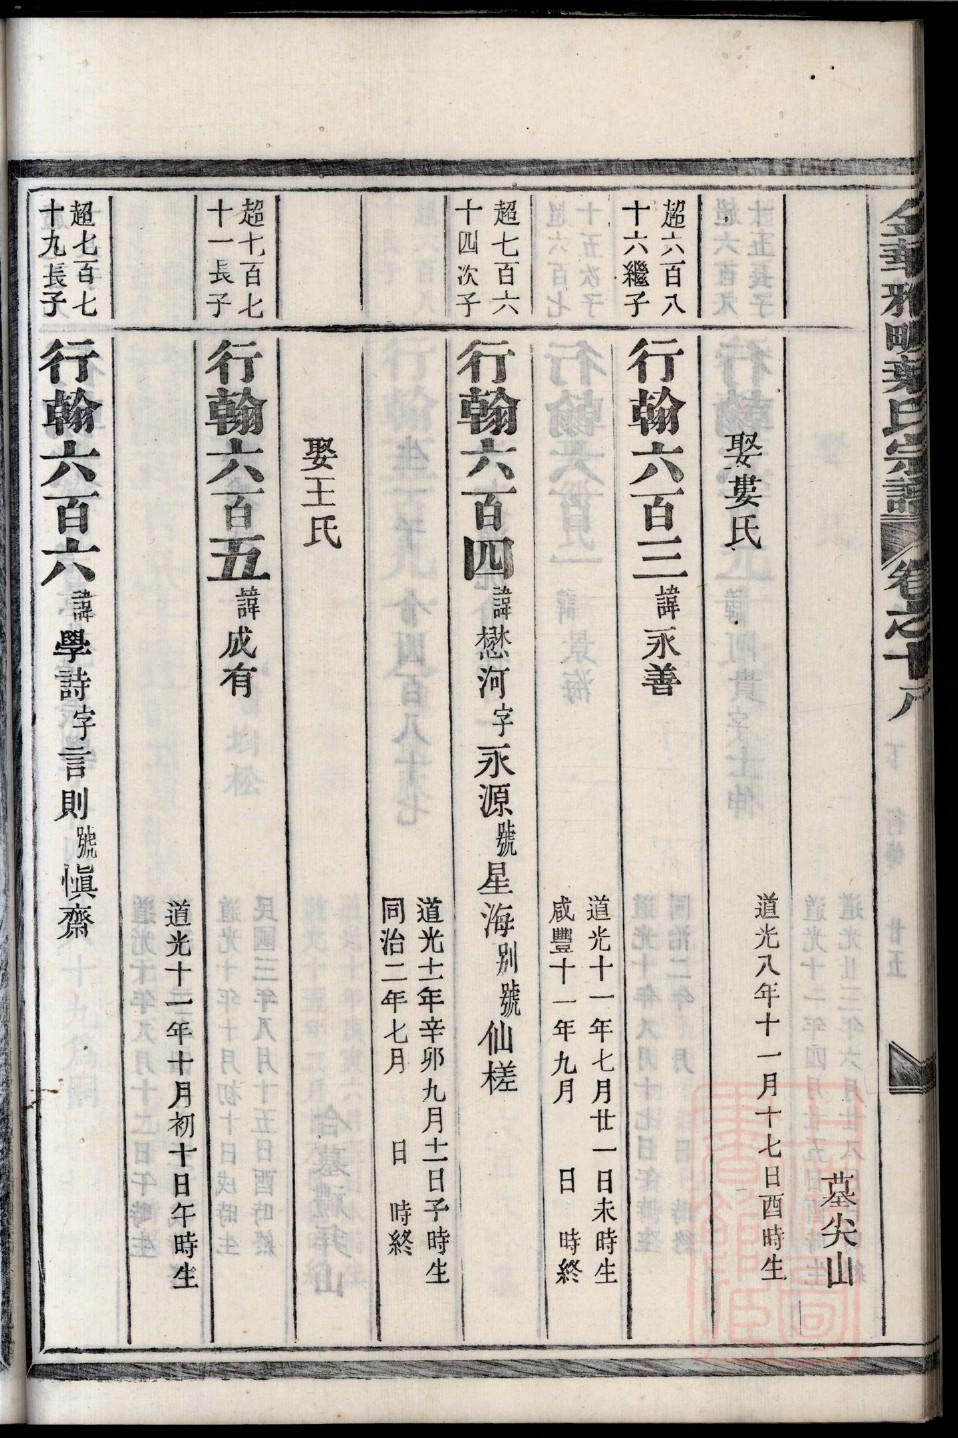 金華雅畈葉氏宗譜 卷之十八
墓尖山
娶婁氏 道光八年十一月十七日酉時生
超六百八
十六繼子
行翰六百三 諱永善
道光十一年七月廿一日未時生
咸豐十一年九月 日 時終
超七百六
十四次子
行翰六百四 諱懋河 字永源 號星海 別號仙槎
道光十一年辛卯九月十一日子時生
同治二年七月 日 時終
娶王氏
超七百七
十一長子
行翰六百五 諱成有
道光十一年十月初十日午時生
超七百七
十九長子
行翰六百六 諱學詩 字言則 號愼齋